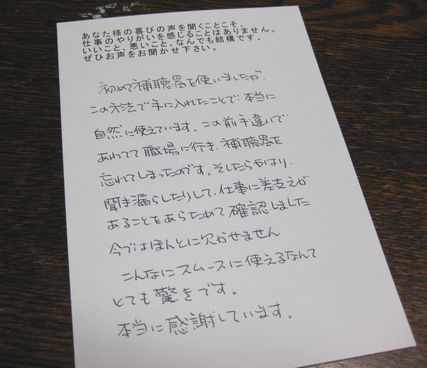 あなた様の喜びの声を聞くことこそ、
仕事のやりがいを感じることはありません。
いいこと、悪いこと、なんでも結構です。
ぜひお声をお聞かせ下さい。
初めて補聴器を使いましたが、
この方法で手に入れたことで本当に
自然に使えています。この前手違いで
あわてて職場に行き、補聴器を
忘れてしまったのです。そしたらやはり、
聞き漏らしたりして、仕事に差支えが
あることをあらためて確認しました
今ではほんとに欠かせません
こんなにスムースに使えるなんて
とても驚きです。
本当に感謝しています。